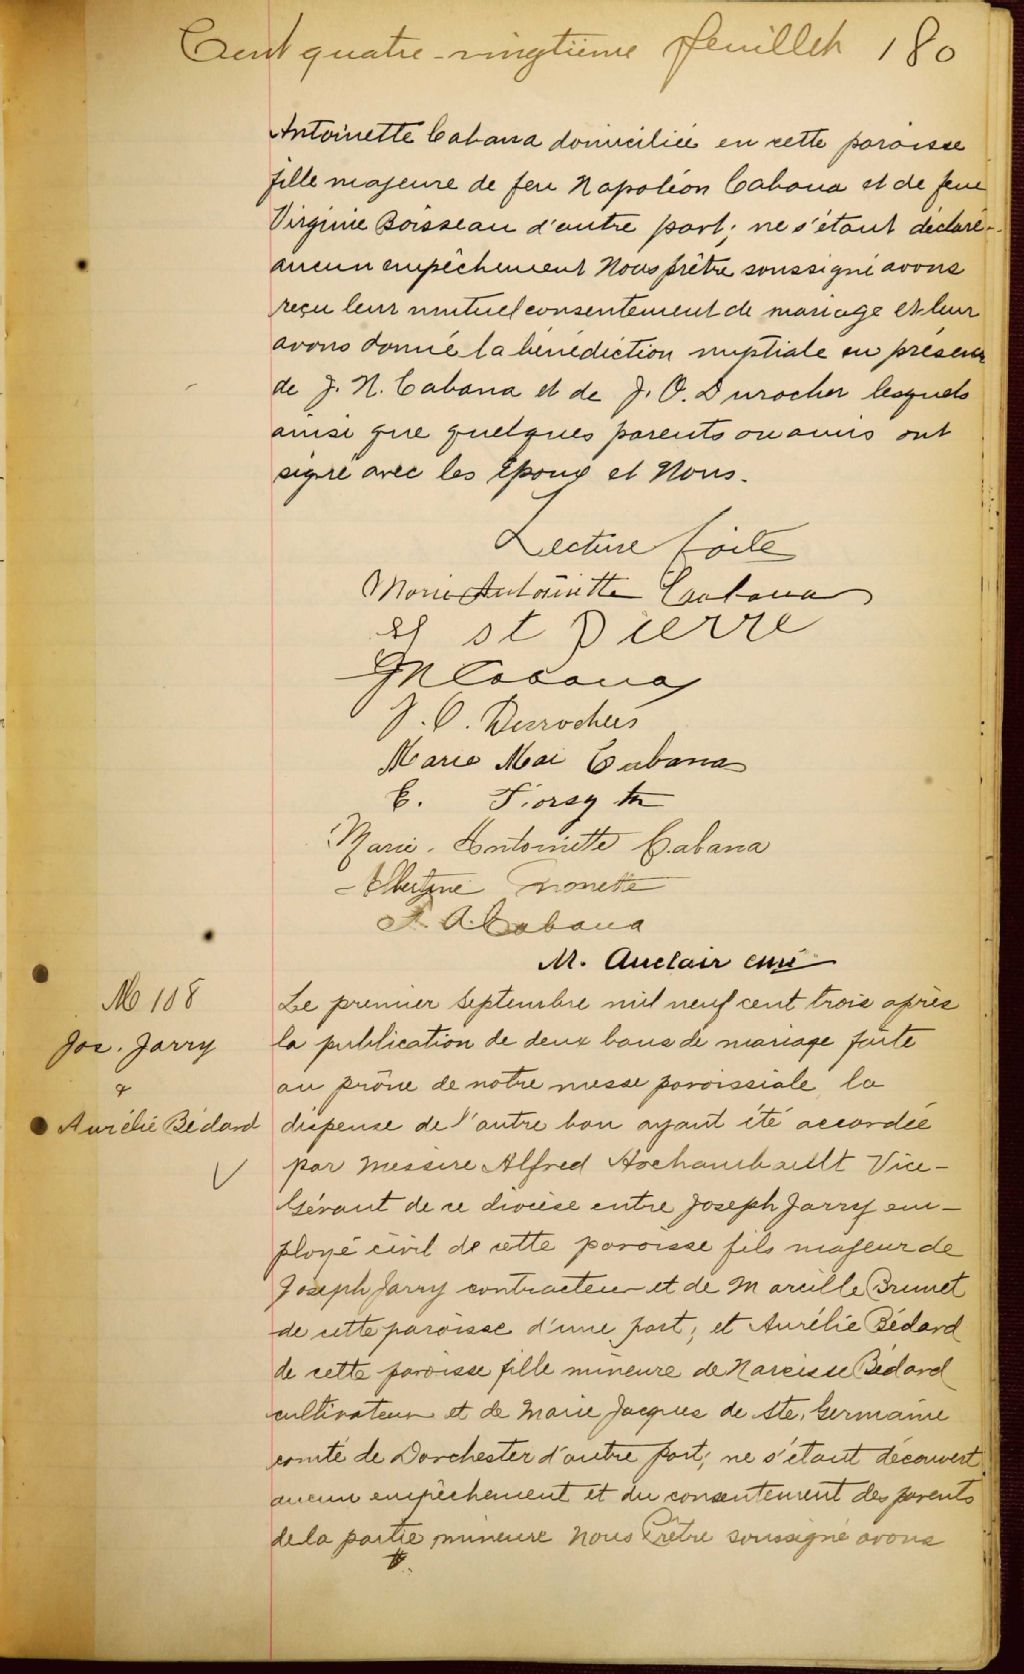 Cent quatre-vingtième feuillet 180
Antoinette Cabana domiciliée en cette paroisse
fille majeure de feu Napoléon Cabana et de feue
Virginie Boisseau d'autre part; ne s'étant déclaré
aucun empêchement Nous prêtre soussigné avons
reçu leur mutuel consentement de mariage et leur
avons donné la bénédiction nuptiale en présence
de J. N. Cabana et de J. O. Durocher lesquels
ainsi que quelques parents ou amis ont
signé avec les Époux et Nous.
Lecture faite
Marie Antoinette Cabana
St Pierre
J N Cabana
J. O. Durochers
Marie Mai Cabana
E. Forsyth
Marie Antoinette Cabana
Albertine Monette
A. Cabana
M. Auclair curé
M 108
Jos. Jarry
&
Aurélie Bédard
Le premier Septembre mil neuf cent trois après
la publication de deux bans de mariage faite
au prône de notre messe paroissiale la
dispense de l'autre ban ayant été accordée
par Messire Alfred Archambault Vice-
Gérant de ce diocèse entre Joseph Jarry em-
ployé civil de cette paroisse fils majeur de
Joseph Jarry contracteur et de Marcille Brunet
de cette paroisse d'une part, et Aurélie Bédard
de cette paroisse fille mineure de Narcisse Bédard
cultivateur et de Marie Jacques de Ste. Germaine
comté de Dorchester d'autre part; ne s'étant découvert
aucun empêchement et du consentement des parents
de la partie mineure Nous Prêtre soussigné avons